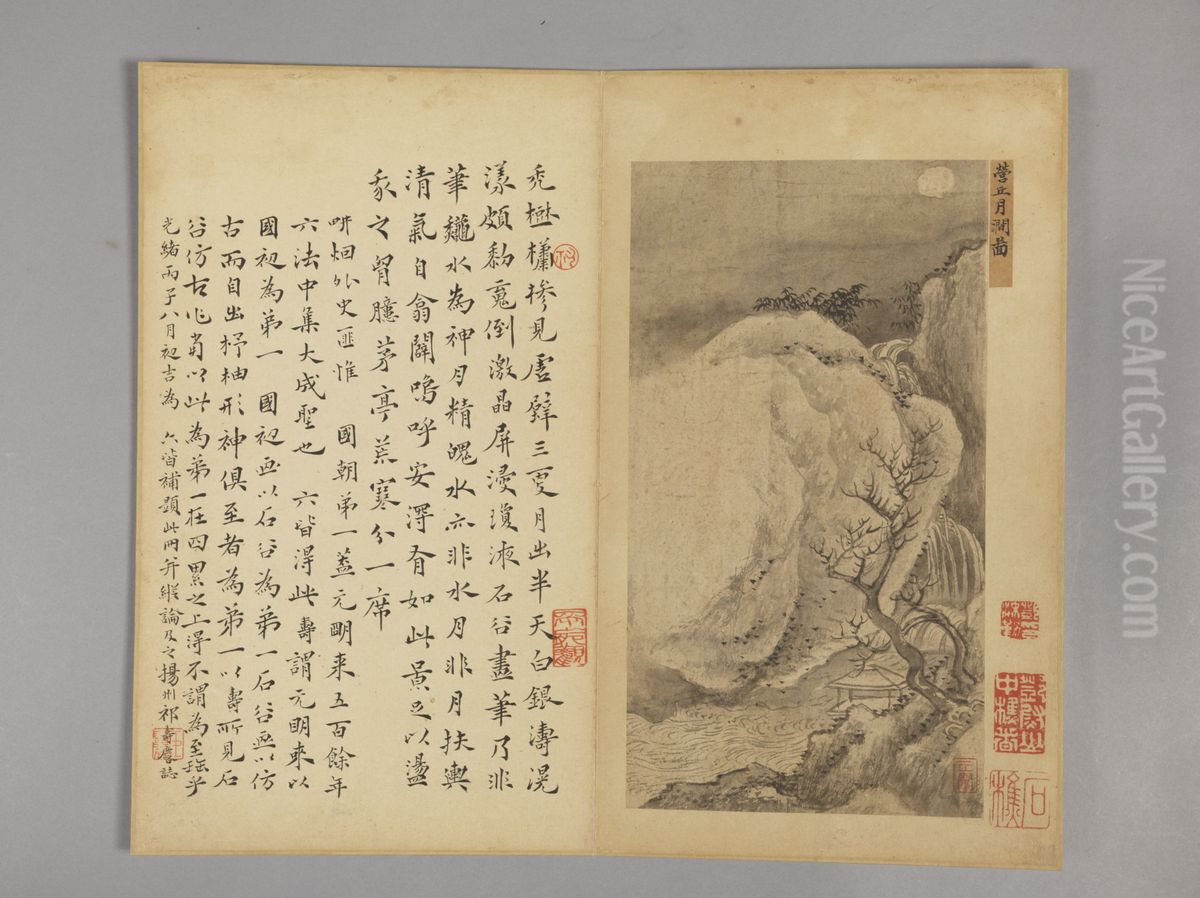 營丘月澗圖
禿樾櫹摻見虛壁三更月出半天白銀濤滉
漾頗黎寬倒激晶屏浸瓊液石谷畫筆乃非
筆墨水為神月精魄水亦非水月非月扶輿
清氣自翕闢嗚呼安得有如此景足以盪
我之胷臆茅亭荒寒分一席
畊烟外史匪惟 國朝弟一蓋元明来五百餘年
六法中集大成聖也 六皆得此壽謂元明来以
國初為弟一 國初画以石谷為弟一石谷画以仿
古而自出杼柚形神俱至者為弟一以壽所見石
谷仿古作當以此為弟一在四累之上得不謂為至寶乎
光緒丙子八月初吉為 六皆補題此冊并縱論及之揚州祁壽麐誌
石樵
NiceArtGallery.com